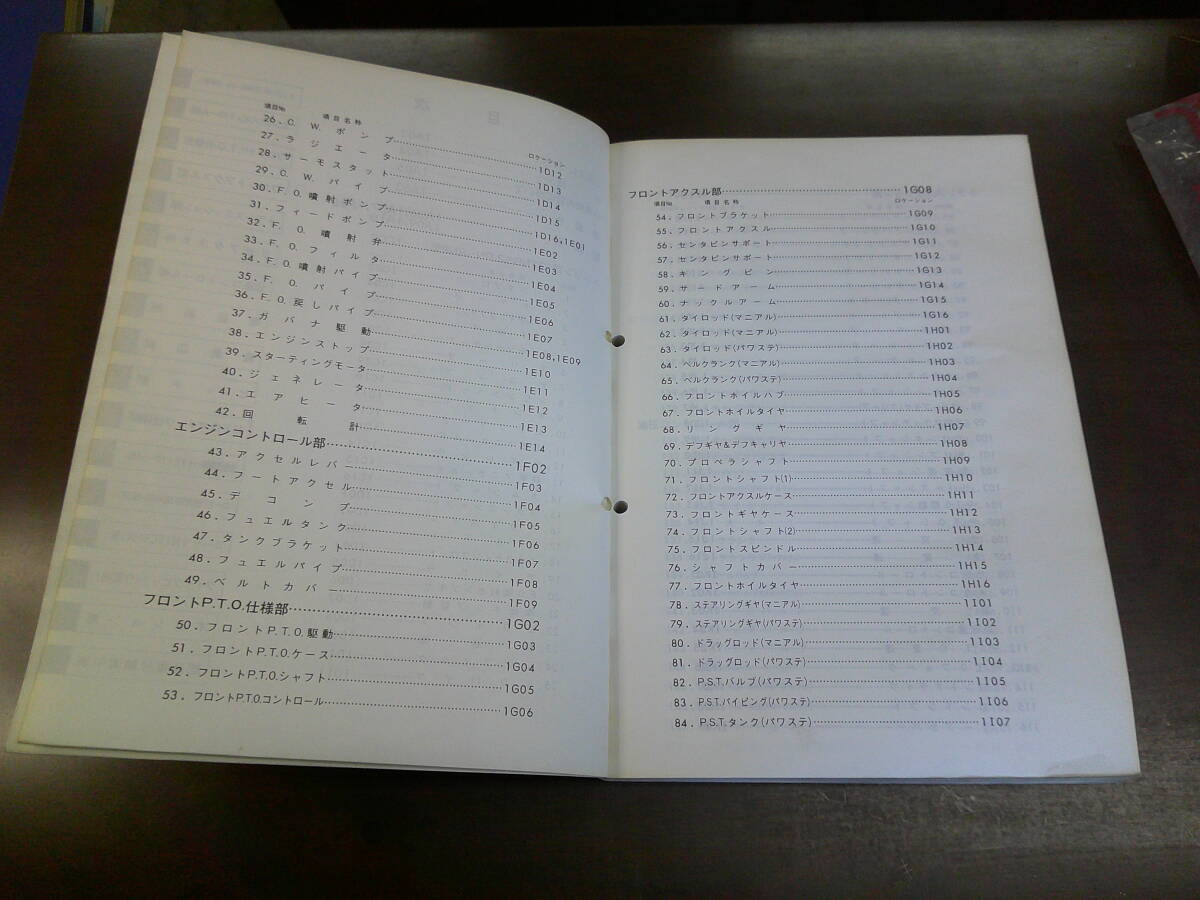 項目№ 項目名称 ロケーション
26. C. W. ポンプ 1D12
27. ラジエータ 1D13
28. サーモスタット 1D14
29. C. W. パイプ 1D15
30. F. O. 噴射ポンプ 1D16,1E01
31. フィードポンプ 1E02
32. F. O. 噴射弁 1E03
33. F. O. フィルタ 1E04
34. F. O. 噴射パイプ 1E05
35. F. O. パイプ 1E06
36. F. O. 戻しパイプ 1E07
37. ガバナ駆動 1E08,1E09
38. エンジンストップ 1E10
39. スターティングモータ 1E11
40. ジェネレータ 1E12
41. エアヒータ 1E13
42. 回転計 1E14
エンジンコントロール部 1F02
43. アクセルレバー 1F03
44. フートアクセル 1F04
45. デコンプ 1F05
46. フュエルタンク 1F06
47. タンクブラケット 1F07
48. フュエルパイプ 1F08
49. ベルトカバー 1F09
フロントP.T.O.仕様部 1G02
50. フロントP.T.O.駆動 1G03
51. フロントP.T.O.ケース 1G04
52. フロントP.T.O.シャフト 1G05
53. フロントP.T.O.コントロール 1G06
フロントアクスル部 1G08
項目№ 項目名称 ロケーション
54. フロントブラケット 1G09
55. フロントアクスル 1G10
56. センタピンサポート 1G11
57. センタピンサポート 1G12
58. キングピン 1G13
59. サードアーム 1G14
60. ナックルアーム 1G15
61. タイロッド(マニアル) 1G16
62. タイロッド(マニアル) 1H01
63. タイロッド(パワステ) 1H02
64. ベルクランク(マニアル) 1H03
65. ベルクランク(パワステ) 1H04
66. フロントホイルハブ 1H05
67. フロントホイルタイヤ 1H06
68. リングギヤ 1H07
69. デフギヤ&デフキャリヤ 1H08
70. プロペラシャフト 1H09
71. フロントシャフト(1) 1H10
72. フロントアクスルケース 1H11
73. フロントギヤケース 1H12
74. フロントシャフト(2) 1H13
75. フロントスピンドル 1H14
76. シャフトカバー 1H15
77. フロントホイルタイヤ 1H16
78. ステアリングギヤ(マニアル) 1I01
79. ステアリングギヤ(パワステ) 1I02
80. ドラッグロッド(マニアル) 1I03
81. ドラッグロッド(パワステ) 1I04
82. P.S.T.バルブ(パワステ) 1I05
83. P.S.T.パイピング(パワステ) 1I06
84. P.S.T.タンク(パワステ) 1I07